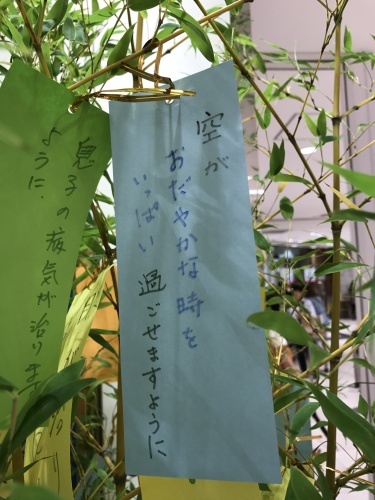 空が
おだやかな時を
いっぱい過ごせますように
息子の病気が治ります
ように.